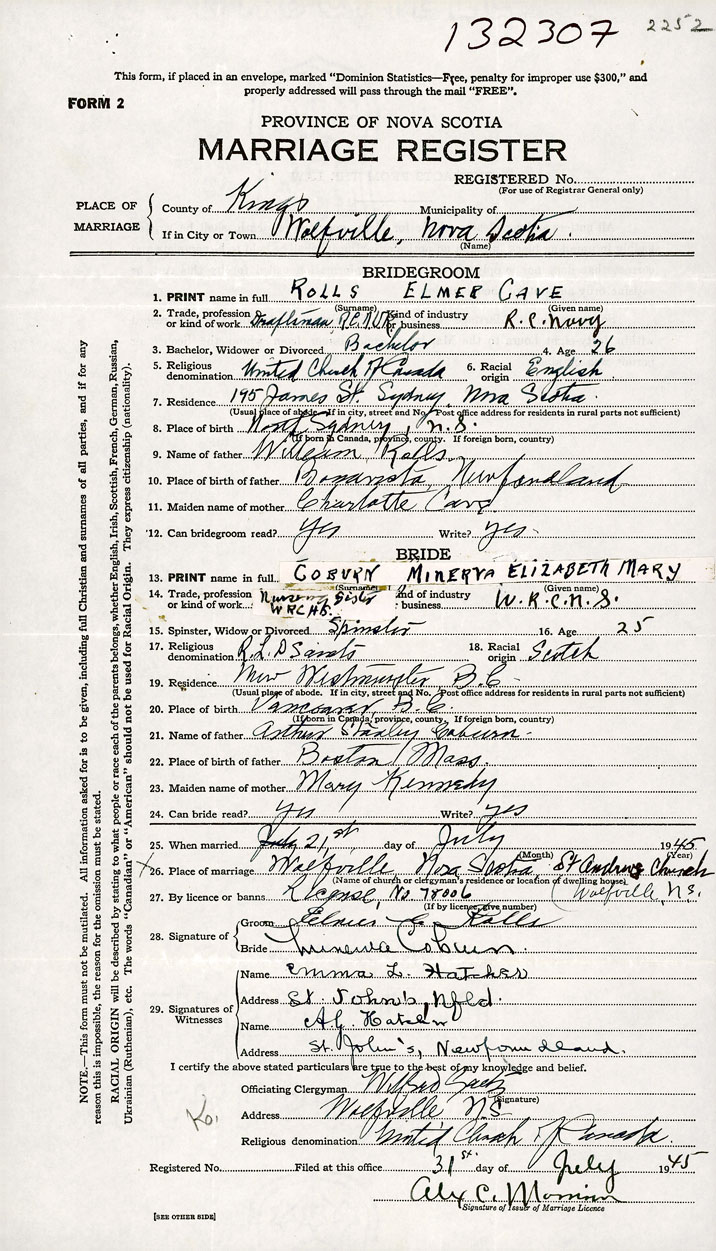 132307 2252
This form, if placed in an envelope, marked "Dominion Statistics—Free, penalty for improper use $300," and
properly addressed will pass through the mail "FREE".
FORM 2
PROVINCE OF NOVA SCOTIA
MARRIAGE REGISTER
REGISTERED No.
(For use of Registrar General only)
PLACE OF MARRIAGE
County of Kings Municipality of
If in City or Town Wolfville, Nova Scotia.
(Name)
BRIDEGROOM
1. PRINT name in full ROLLS ELMER CAVE
(Surname) (Given name)
2. Trade, profession or kind of work Draftsman Kind of industry or business R.C. Navy
3. Bachelor, Widower or Divorced Bachelor 4. Age 26
5. Religious denomination United Church of Canada 6. Racial origin English
7. Residence 195 James St. Sydney, Nova Scotia.
(Usual place of abode. If in city, street and No. Post office address for residents in rural parts not sufficient)
8. Place of birth North Sydney, N.S.
(If born in Canada, province, county. If foreign born, country)
9. Name of father William Rolls.
10. Place of birth of father Bonavista, Newfoundland
11. Maiden name of mother Charlotte Cave
12. Can bridegroom read? yes Write? yes
BRIDE
13. PRINT name in full COBURN MINERVA ELIZABETH MARY
(Surname) (Given name)
14. Trade, profession or kind of work Nursing Sister WRCNS. Kind of industry or business W.R.C.N.S.
15. Spinster, Widow or Divorced Spinster 16. Age 25
17. Religious denomination R.L.D Saints 18. Racial origin Scotch
19. Residence New Westminster B.C.
(Usual place of abode. If in city, street and No. Post office address for residents in rural parts not sufficient)
20. Place of birth Vancouver, B.C.
(If born in Canada, province, county, If foreign born, country)
21. Name of father Arthur Stanley Coburn.
22. Place of birth of father Boston, Mass.
23. Maiden name of mother Mary Kennedy
24. Can bride read? yes Write? yes
25. When married July 21st day of July 1945
(Month) (Year)
26. Place of marriage Wolfville, Nova Scotia, St Andrews Church
(Name of church or clergyman's residence or location of dwelling house)
27. By licence or banns License, No 78006 (Wolfville, N.S.
(If by licence, give number)
28. Signature of
Groom Elmer C. Rolls
Bride Minerva Coburn.
29. Signatures of Witnesses
Name Emma L. Hatcher
Address St. John's, Nfld.
Name A.G. Hatcher
Address St. John's, Newfoundland.
I certify the above stated particulars are true to the best of my knowledge and belief.
Officiating Clergyman Wilfred
(Signature)
Address Wolfville N.S.
Religious denomination United Church of Canada.
Registered No. Filed at this office 31st day of July 1945
Alex C.
Signature of Issuer of Marriage Licence
[SEE OTHER SIDE]
NOTE.—This form must not be mutilated. All information asked for is to be given, including full Christian and surnames of all parties, and if for any
reason this is impossible, the reason for the omission must be stated.
RACIAL ORIGIN will be described by stating to what people or race each of the parents belongs, whether English, Irish, Scottish, French, German, Russian,
Ukrainian (Ruthenian), etc. The words "Canadian" or "American" should not be used for Racial Origin. They express citizenship (nationality).